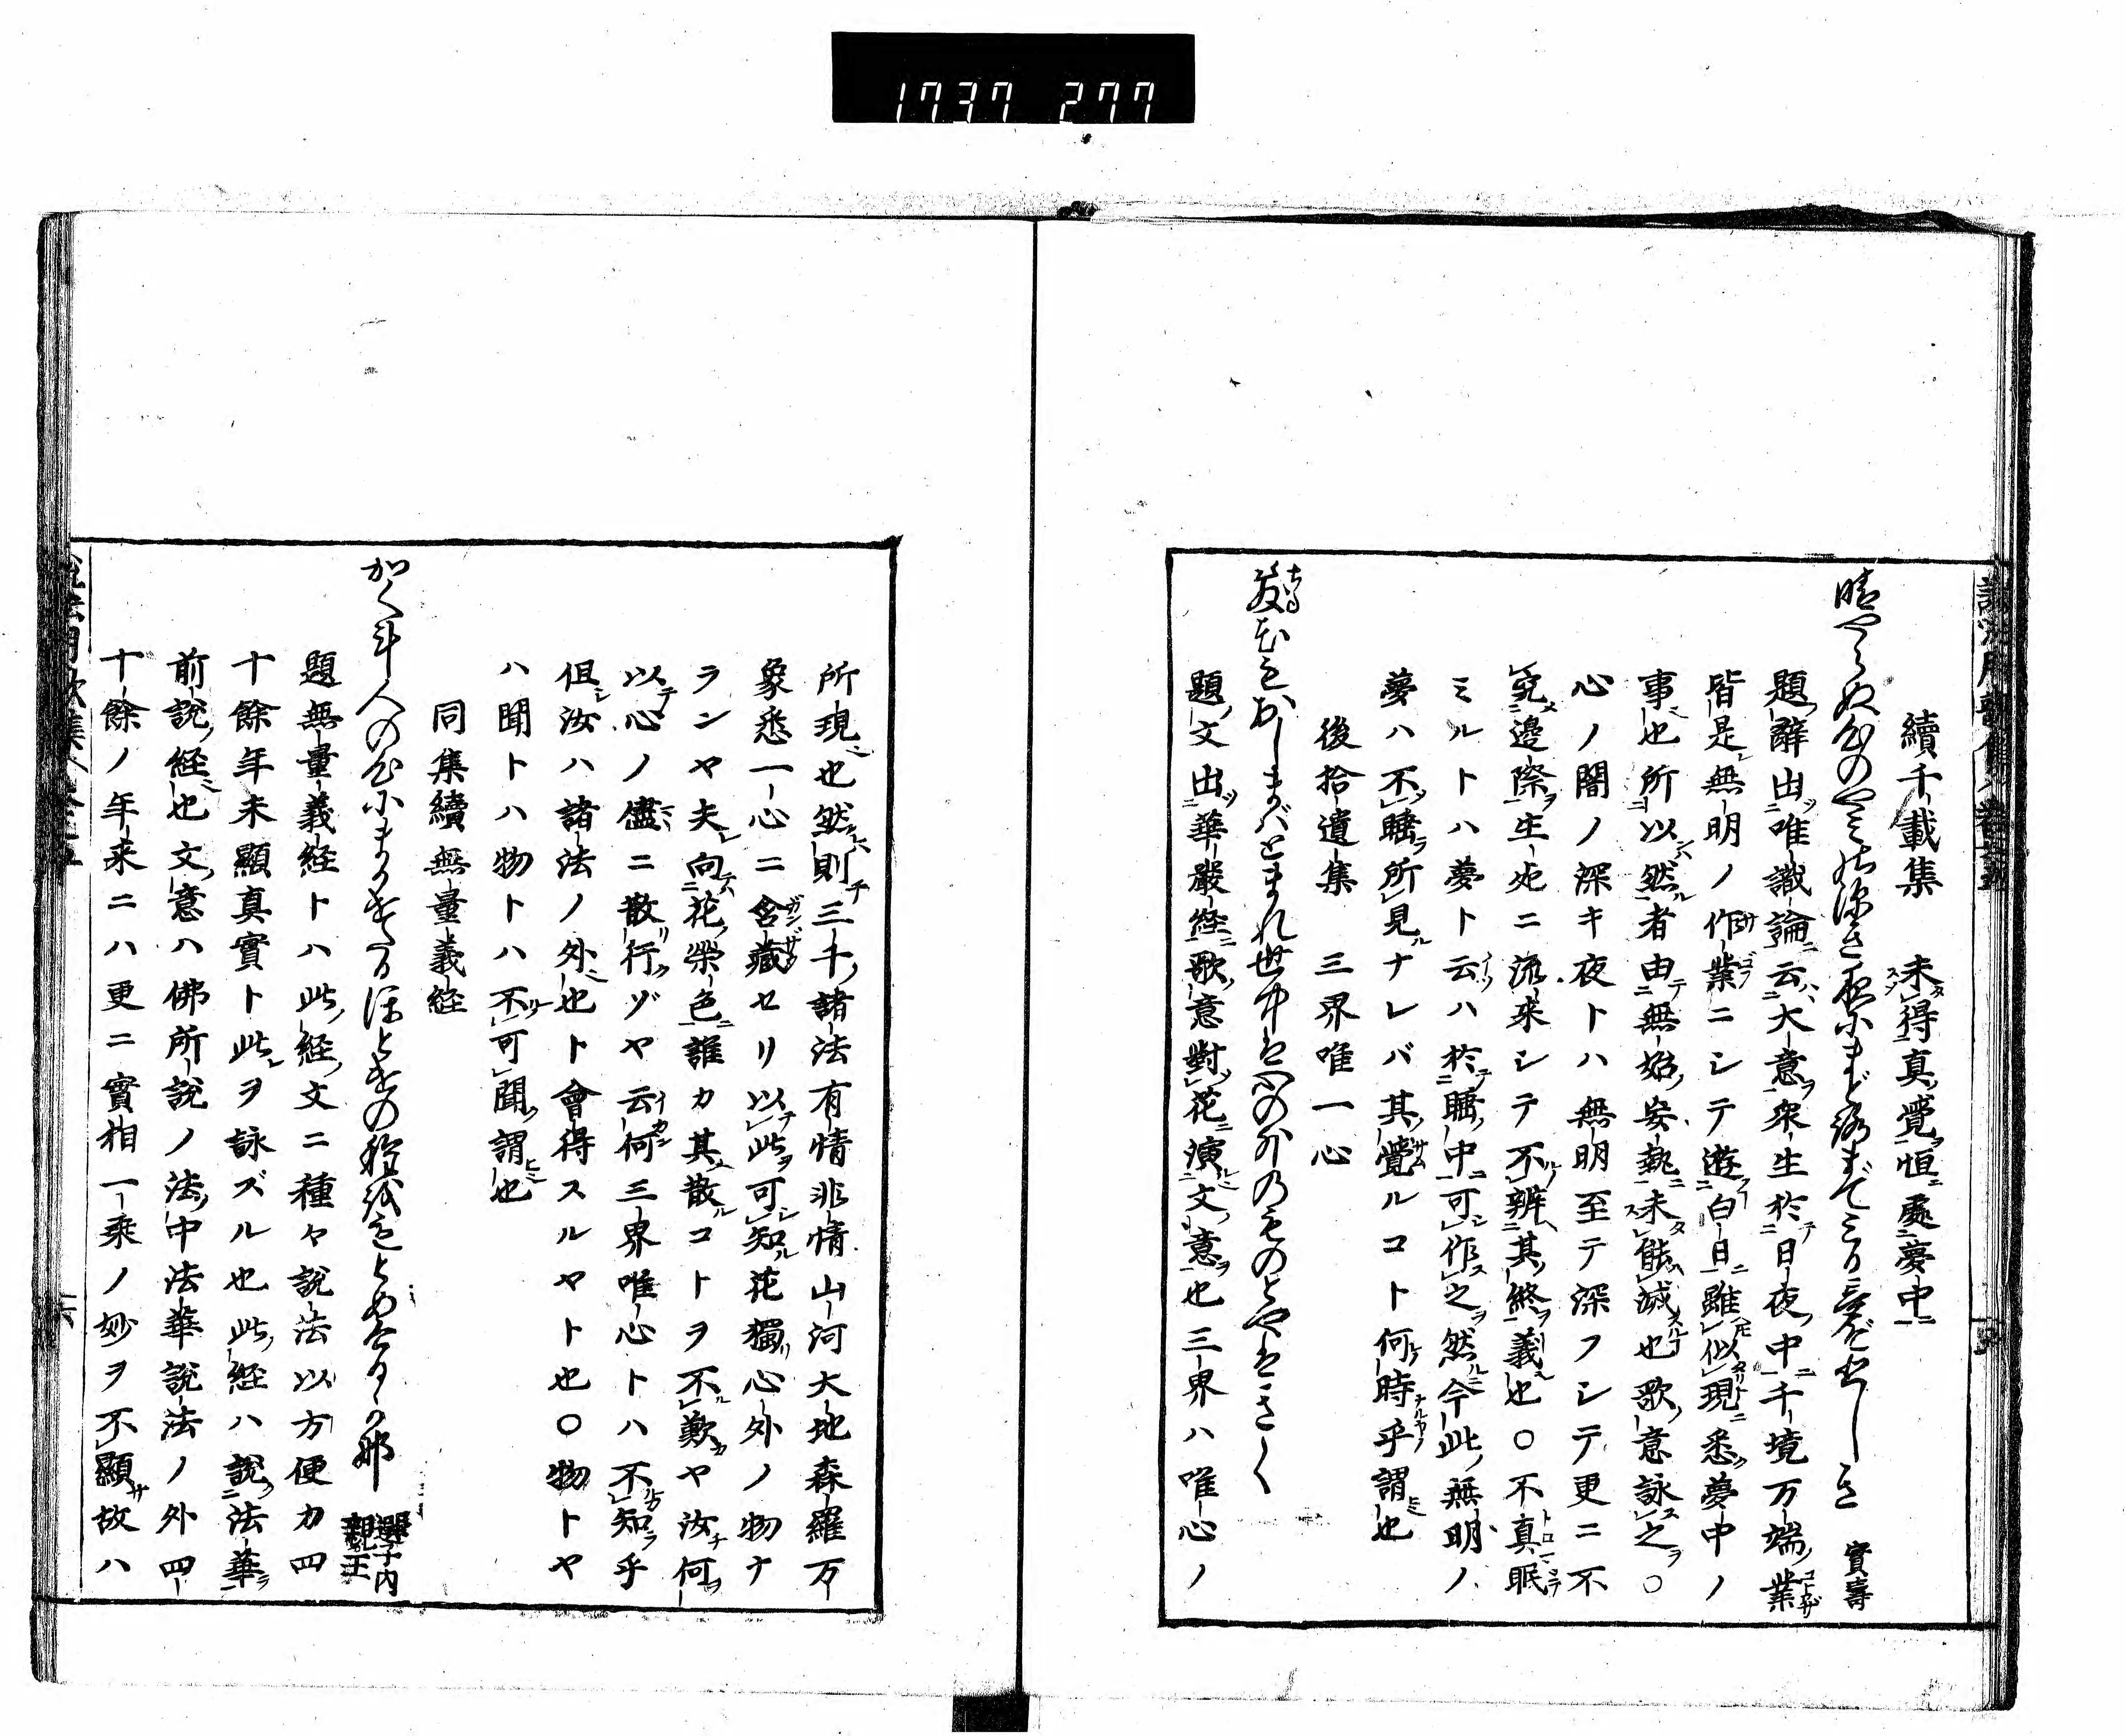 1737 277
續千載集　未得真覺恒處夢中
晴やらぬ心のやみの深き夜にまどろまでみる夢ぞかなしき　實壽
題辭出唯識論云大意衆生於日夜中千境万端業
皆是無明ノ作業ニシテ遊白日雖似現悉夢中ノ
事也所以然者由無始妄執未能滅也歌意詠之〇
心ノ闇ノ深キ夜トハ無明至テ深フシテ更ニ不
究邊際生死ニ流来シテ不辨其終義也〇不真眠
ミルトハ夢ト云ハ於睡中可作之然今此無明ノ
夢ハ不睡所見ナレバ其覺ルコト何時乎謂也
後拾遺集　三界唯一心
ちる花もおしまばとまれ世中は心の外のものとやはきく
題文出華嚴経歌意對花演文意也三界ハ唯心ノ
所現也然則三千諸法有情非情山河大地森羅万
象悉一心ニ含藏セリ以此可知花獨心外ノ物ナ
ランヤ夫向花榮色誰カ其散コトヲ不歎ヤ汝何
以心ノ儘ニ散行ゾヤ云何三界唯心トハ不知乎
但汝ハ諸法ノ外也ト會得スルヤト也〇物トヤ
ハ聞トハ物トハ不可聞謂也
同集續無量義経
題無量義経トハ此経文ニ種々説法以方便力四
十餘年未顯真實ト此ヲ詠ズル也此経ハ説法華
前説経也文意ハ佛所説ノ法中法華説法ノ外四
十餘ノ年来ニハ更ニ實相一乘ノ妙ヲ不顯故ハ